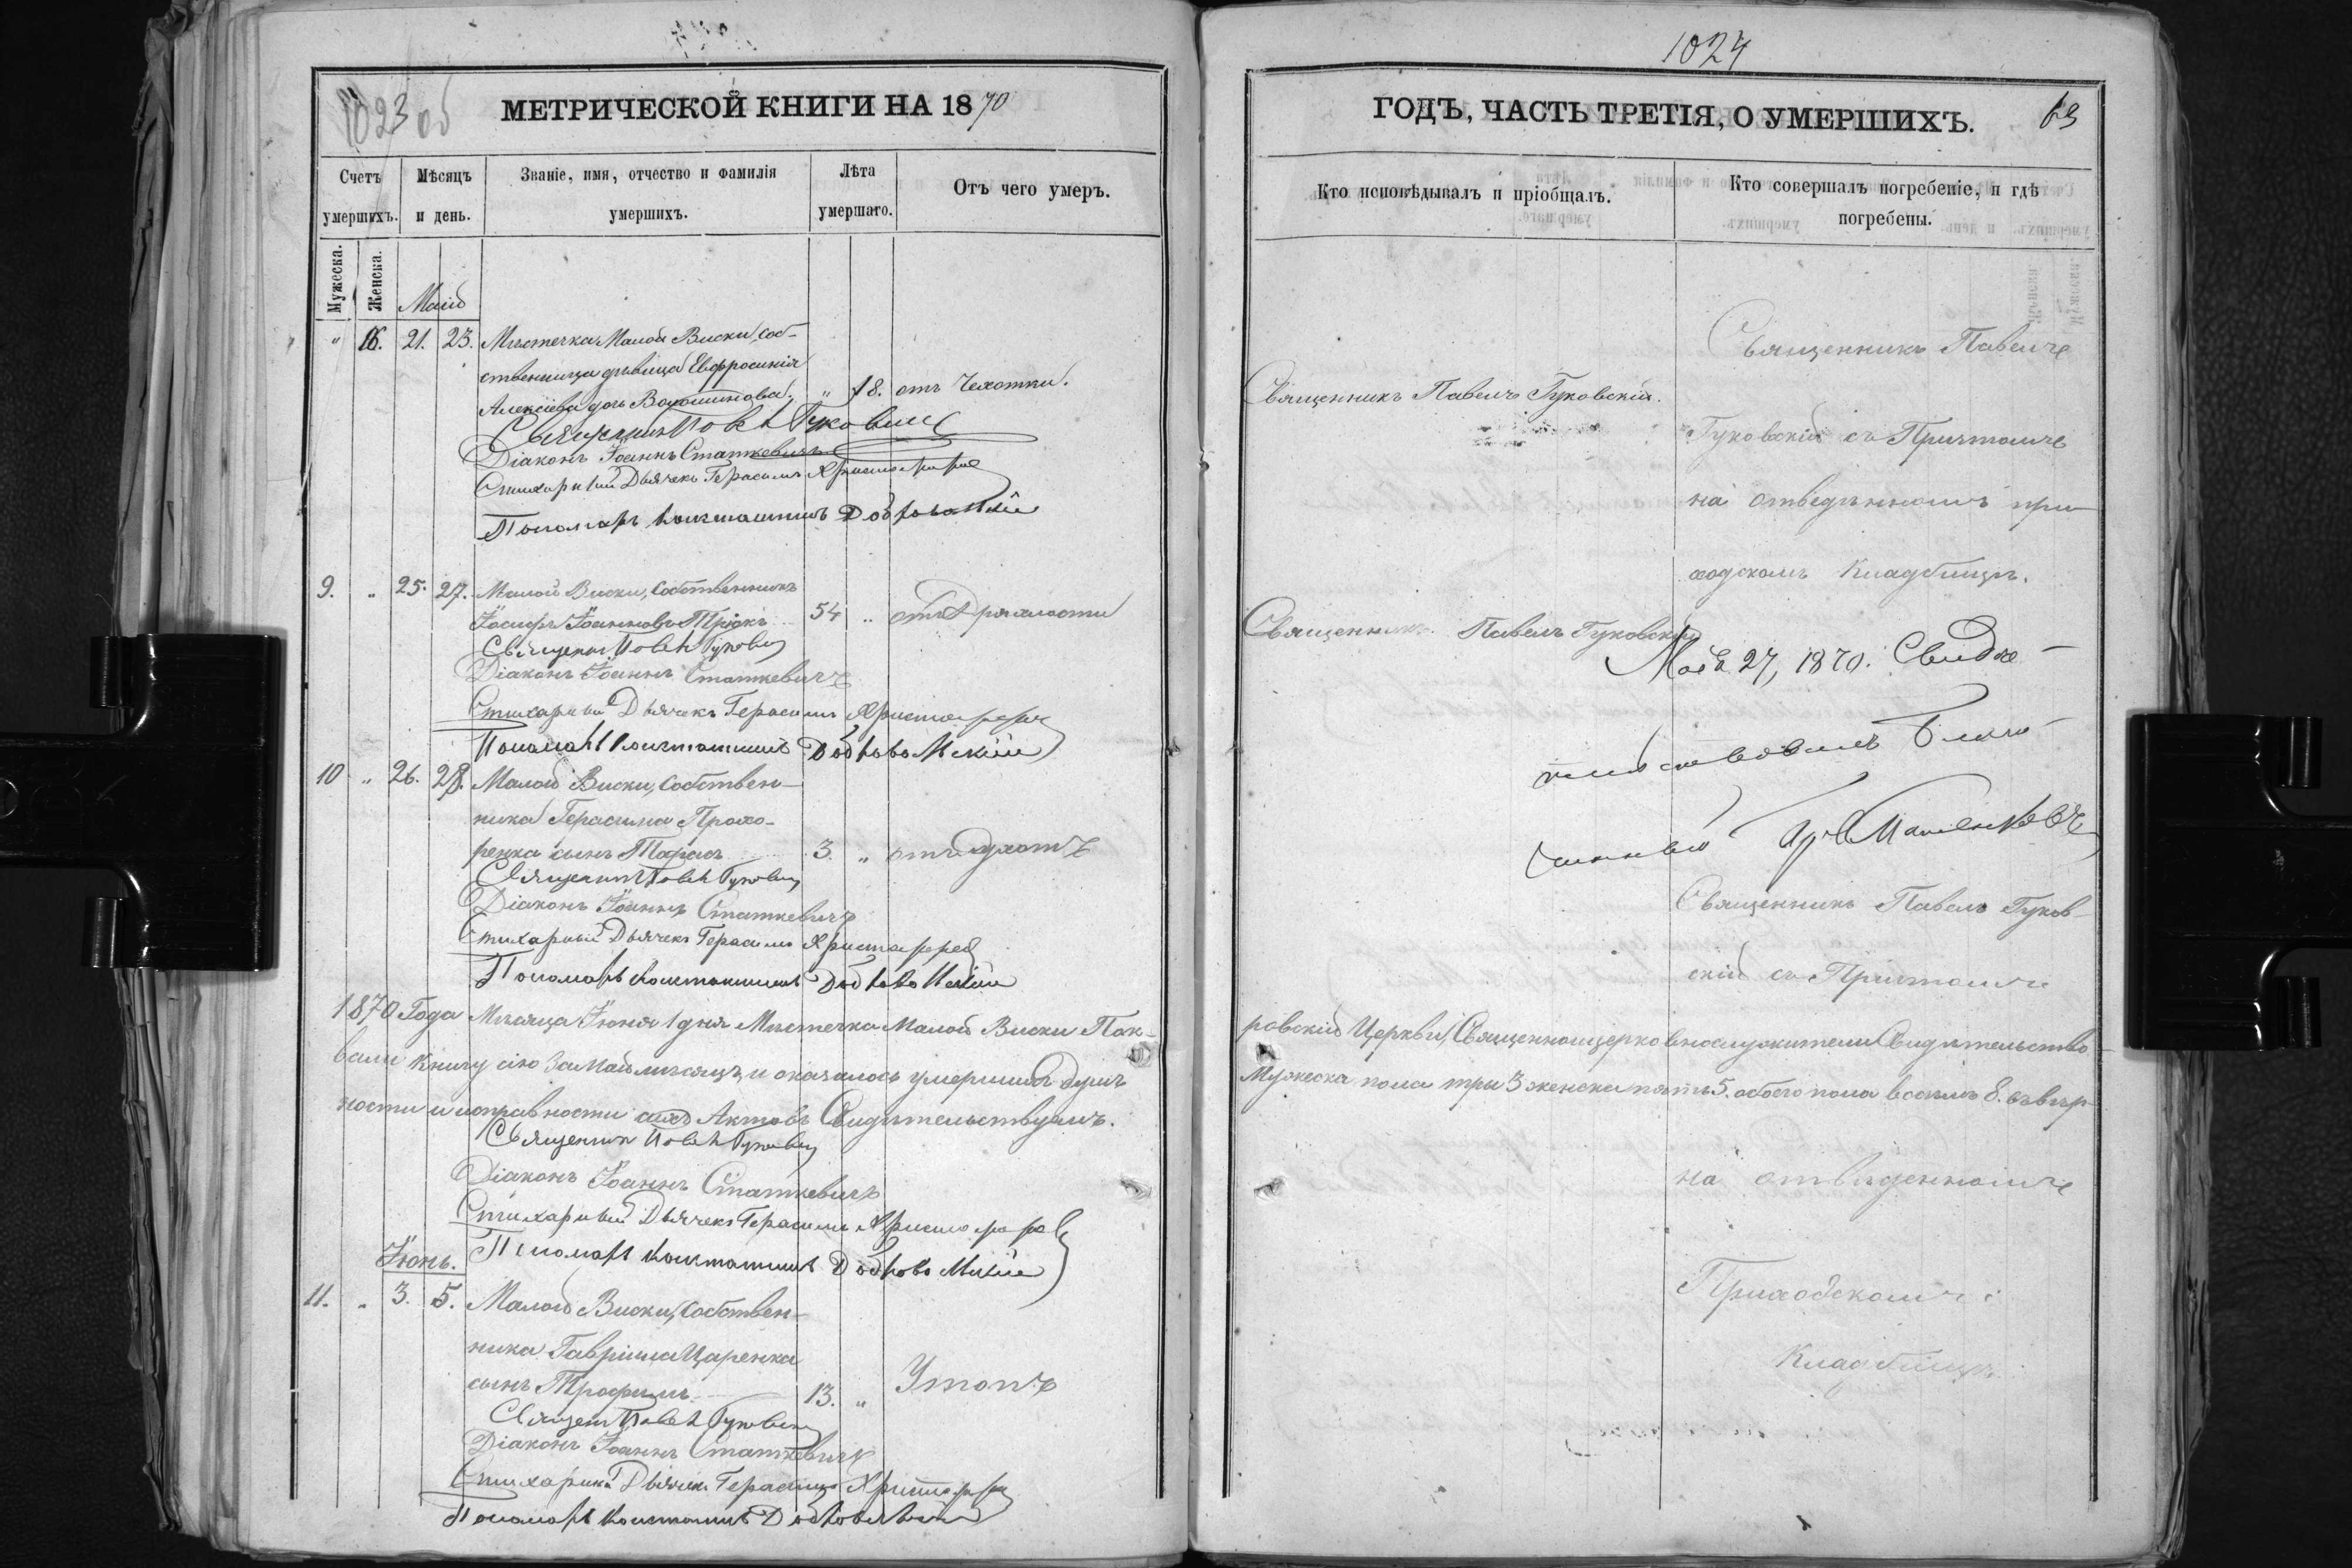 1023 об
МЕТРИЧЕСКОЙ КНИГИ НА 1870
Счетъ умершихъ.
Мѣсяцъ и день.
Званіе, имя, отчество и фамилія умершихъ.
Лѣта умершаго.
Отъ чего умеръ.
Мужеска.
Женска.
Маій
" 16. 21. 23. Мѣстечка Малой Виски, соб-
ственница дѣвица Евфросинія
Алексіева дочь Волошинова. " 18. отъ Чехотки.
Священникъ Павелъ Гуковскій
Діаконъ Іоаннъ Статкевичъ
Стихарный Дьячекъ Герасимъ Христофоров
Пономарь Константинъ Добровольскій
9. " 25. 27. Малой Виски, Собственникъ
Іосифъ Іоанновъ 54 " отъ Дряхлости
Священникъ Павелъ Гуковскій
Діаконъ Іоаннъ Статкевичъ
Стихарный Дьячекъ Герасимъ Христофоров
Пономарь Константинъ Добровольскій
10 " 26. 28. Малой Виски, Собствен-
ника Герасима Прохо-
ренка сынъ Тарасъ 3. " отъ
Священникъ Павелъ Гуковскій
Діаконъ Іоаннъ Статкевичъ
Стихарный Дьячекъ Герасимъ Христофоров
Пономарь Константинъ Добровольскій
1870 Года Мѣсяца Іюня 1 дня Мѣстечка Малой Виски Пок-
вали книгу сію за Май мѣсяцъ, и оказалось умершихъ душъ
ности и исправности сихъ Актовъ Свидѣтельствуемъ.
Священникъ Павелъ Гуковскій
Діаконъ Іоаннъ Статкевичъ
Стихарный Дьячекъ Герасимъ Христофоров
Пономарь Константинъ Добровольскій
Іюнь.
11. " 3. 5. Малой Виски, Собствен-
ника Гавріила Царенка
сынъ Трофимъ 13. " Утопъ
Священникъ Павелъ Гуковскій
Діаконъ Іоаннъ Статкевичъ
Стихарный Дьячекъ Герасимъ Христофоров
Пономарь Константинъ Добровольскій
1024
ГОДЪ, ЧАСТЬ ТРЕТІЯ, О УМЕРШИХЪ.
69
Кто исповѣдывалъ и пріобщалъ.
Кто совершалъ погребеніе, и гдѣ погребены.
Священникъ Павелъ
Священникъ Павелъ Гуковскій.
Гуковскій съ Притомъ
на отведѣнномъ при-
ходскомъ Кладбищѣ.
Священникъ Павелъ Гуковскій
Маія 27, 1870. Свидѣ-
тельствовалъ Благо-
чинный
Священникъ Павелъ Гуков-
скій съ Притомъ
ровской Церкви, Священноицерковнослужители Свидѣтельство-
Мужеска пола три 3 женска пять 5. обоего пола восемь 8. въ вѣр-
на отведенномъ
Приходскомъ
Кладбищѣ.